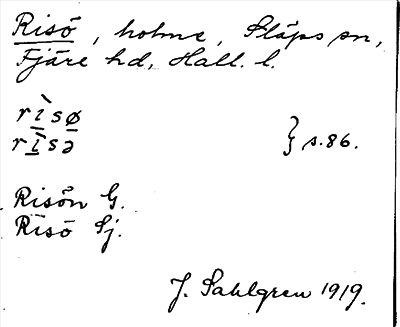 Risö, holme, Släps sn,
Fjäre hd, Hall. l.
rìsø
rìsə } s.86.
Risön G.
Risö Sj.
J. Sahlgren 1919.